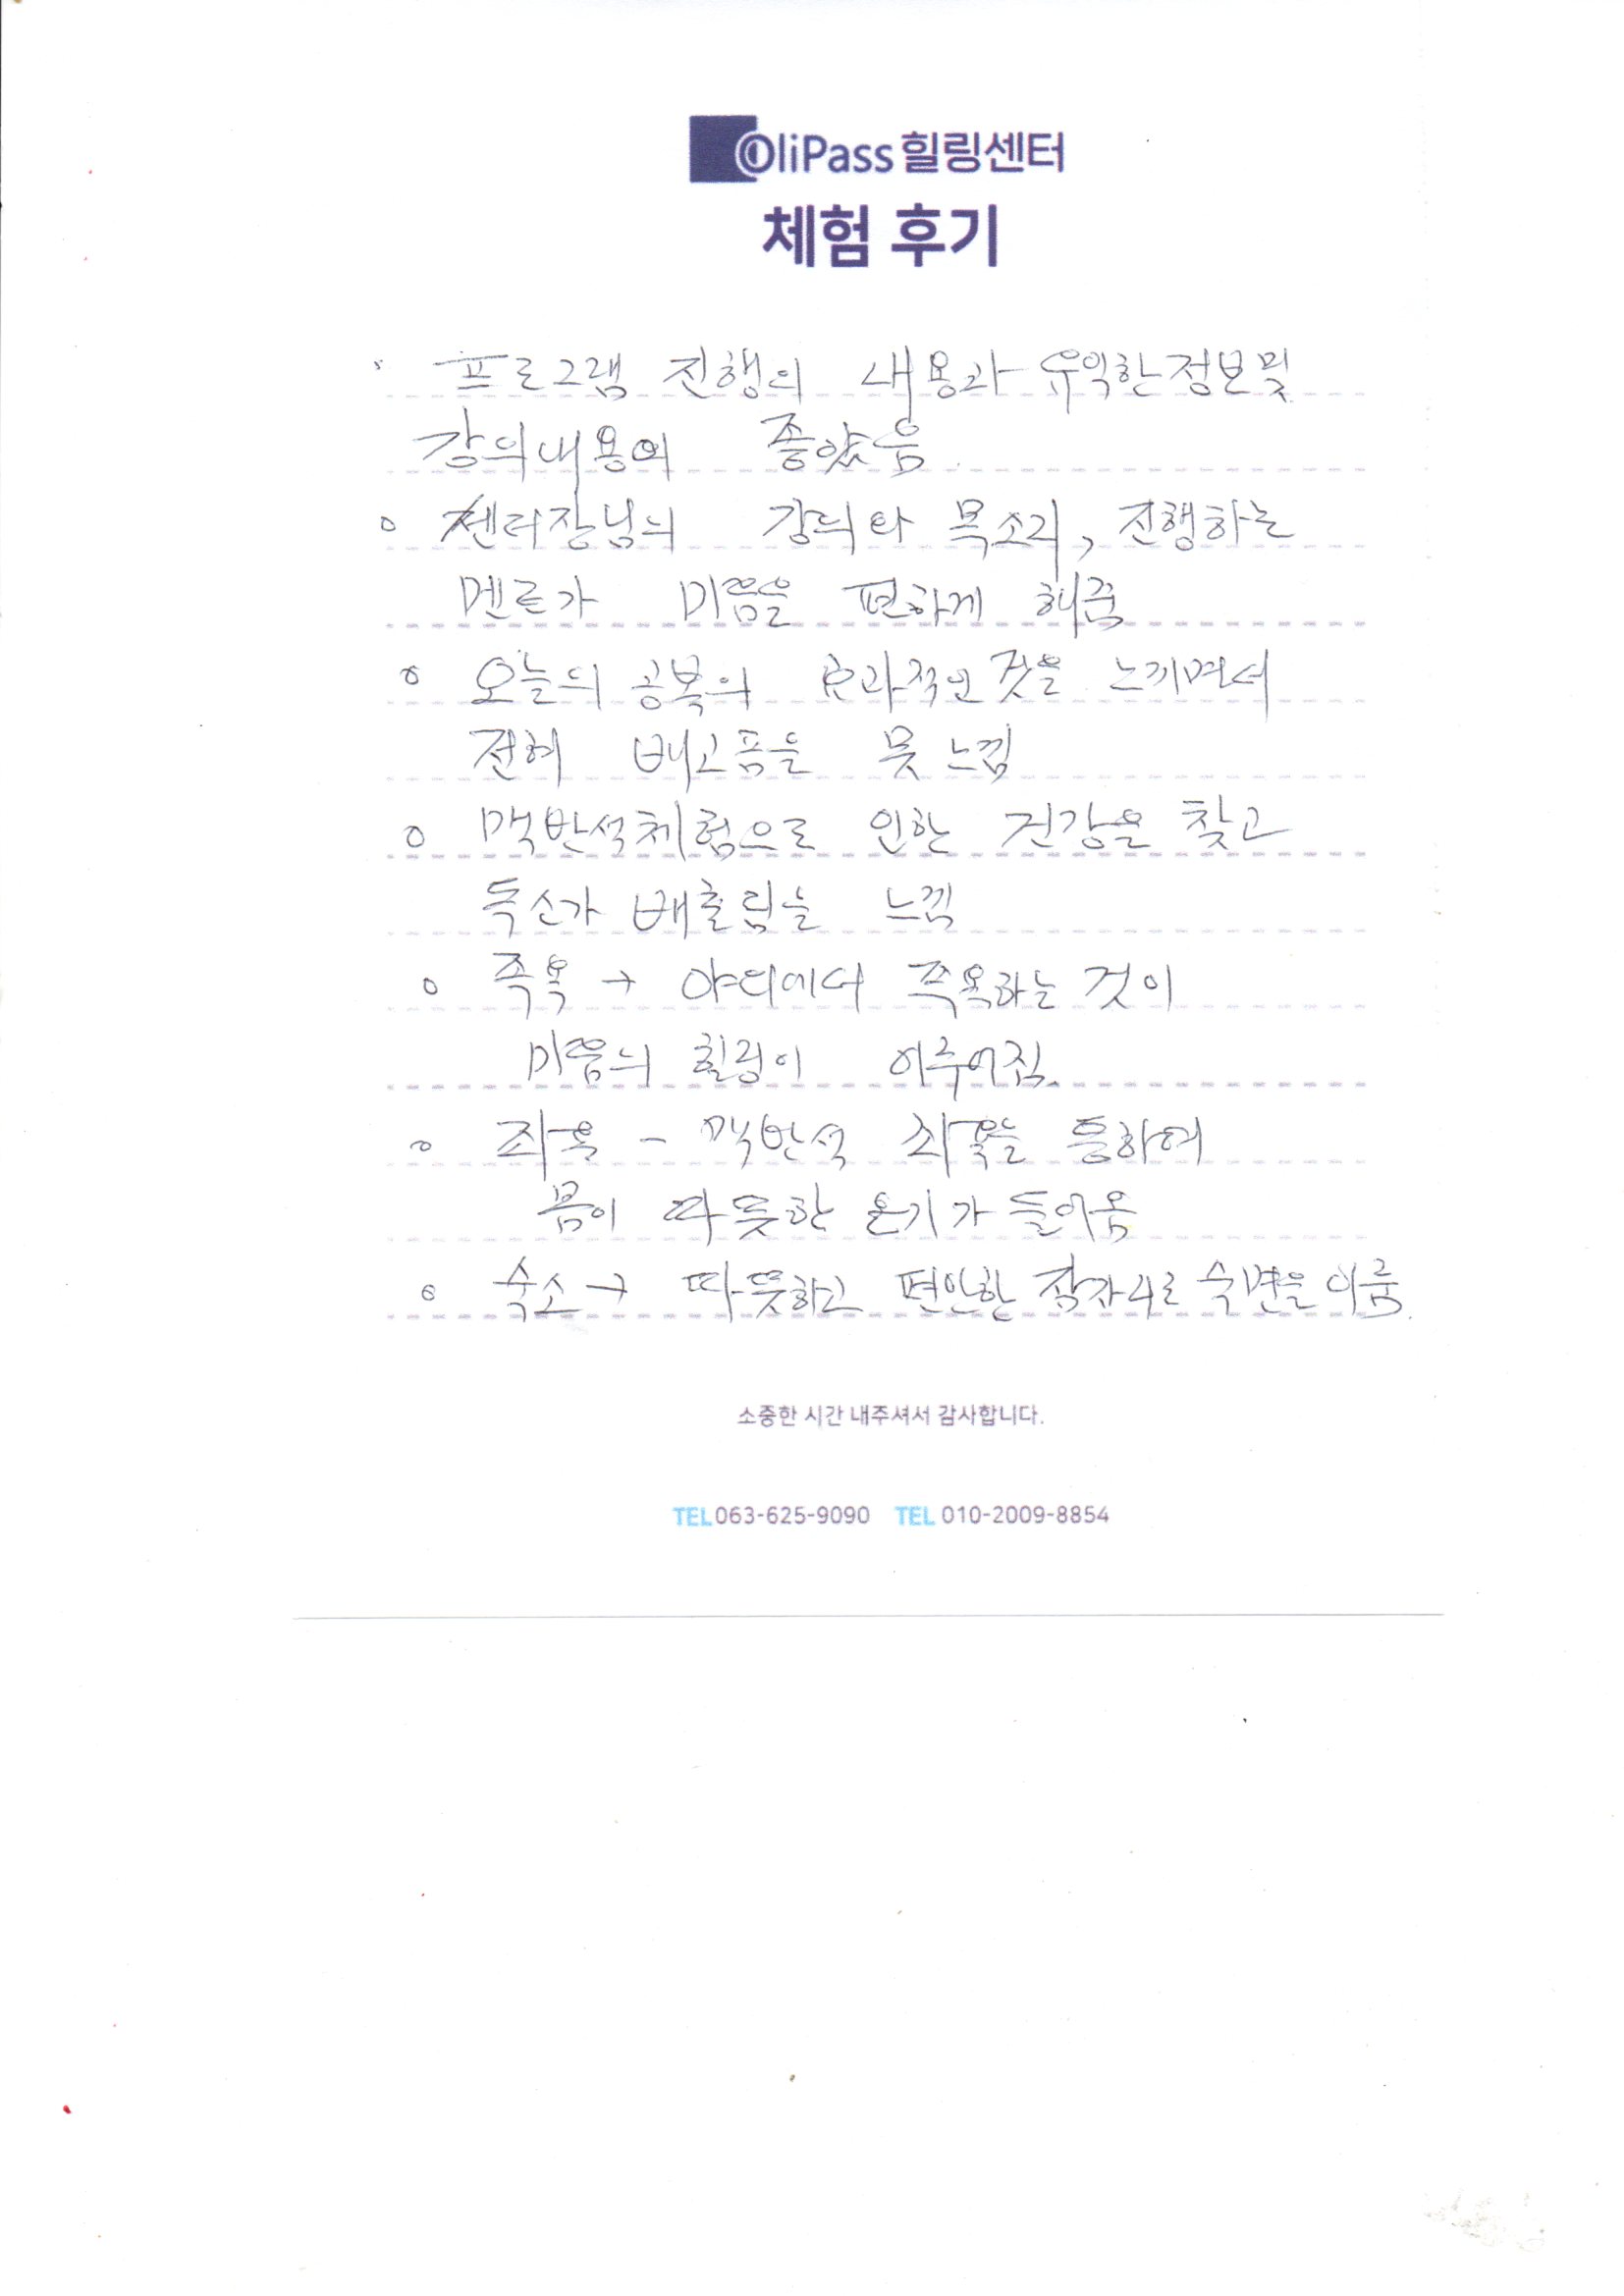 OliPass 힐링센터
체험 후기
· 프로그램 진행의 내용과 유익한 정보 및
강의내용의 좋았음
○ 센터장님의 강의와 목소리, 진행하는
멘트가 마음을 편하게 해줌
○ 오늘의 공복의 효과적인 것을 느끼면서
전혀 배고픔을 못 느낌
○ 맥반석체험으로 인한 건강을 찾고
독소가 배출됨을 느낌
○ 족욕 → 야외에서 족욕하는 것이
마음의 힐링이 이루어짐.
○ 좌욕 - 맥반석 좌욕을 통하여
몸이 따뜻한 온기가 들어옴
○ 숙소 → 따뜻하고 편안한 잠자리로 숙면을 이룸.
소중한 시간 내주셔서 감사합니다.
TEL 063-625-9090 TEL 010-2009-8854